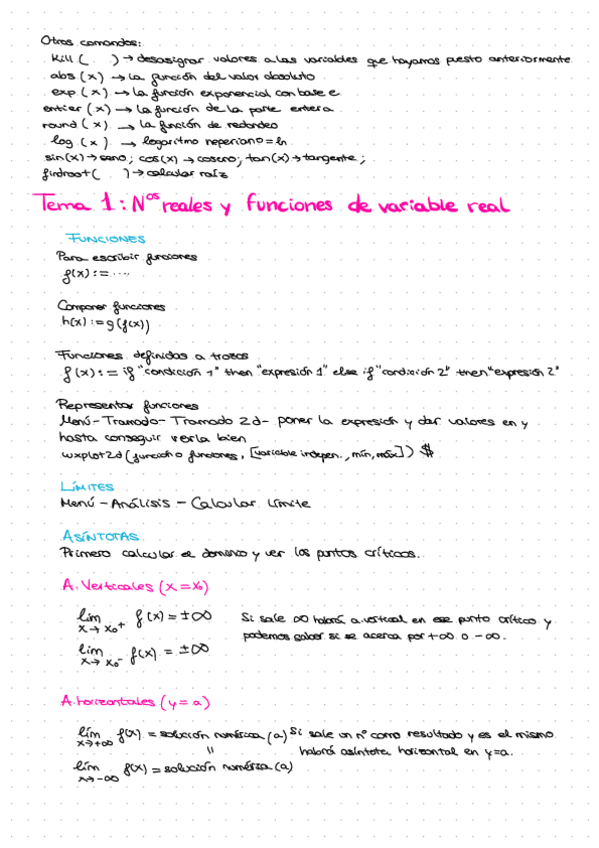 Otros comandos:
Kill ( ) → desasignar valores a las variables que hayamos puesto anteriormente
abs (x) → la función del valor absoluto
exp (x) → la función exponencial con base e
entier (x) → la función de la parte entera
round (x) → la función de redondeo
log (x) → logaritmo neperiano = ln
sin(x) → seno; cos(x) → coseno; tan(x) → tangente;
findroot ( ) → calcular raíz
Tema 1: Nos reales y funciones de variable real
FUNCIONES
Para escribir funciones
f(x) := ....
Componer funciones
h(x) := g(f(x))
Funciones definidas a trozos
f(x) := if "condición 1" then "expresión 1" else if "condición 2" then "expresión 2"
Representar funciones
Menú - Tramado - Tramado 2d - poner la expresión y dar valores en y
hasta conseguir verla bien
wxplot2d (función o funciones, [variable indepen., mín, máx]) $
LÍMITES
Menú - Análisis - Calcular límite
ASÍNTOTAS
Primero calcular el dominio y ver los puntos críticos.
A. Verticales (x = x₀)
lím x→x₀⁺ f(x) = ±∞ Si sale ∞ habrá a. vertical en ese punto crítico y
podemos saber si se acerca por +∞ o -∞.
lím x→x₀⁻ f(x) = ±∞
A. horizontales (y = a)
lím x→+∞ f(x) = solución numérica (a) Si sale un nº como resultado y es el mismo
" habrá asíntota horizontal en y=a.
lím x→-∞ f(x) = solución numérica (a)